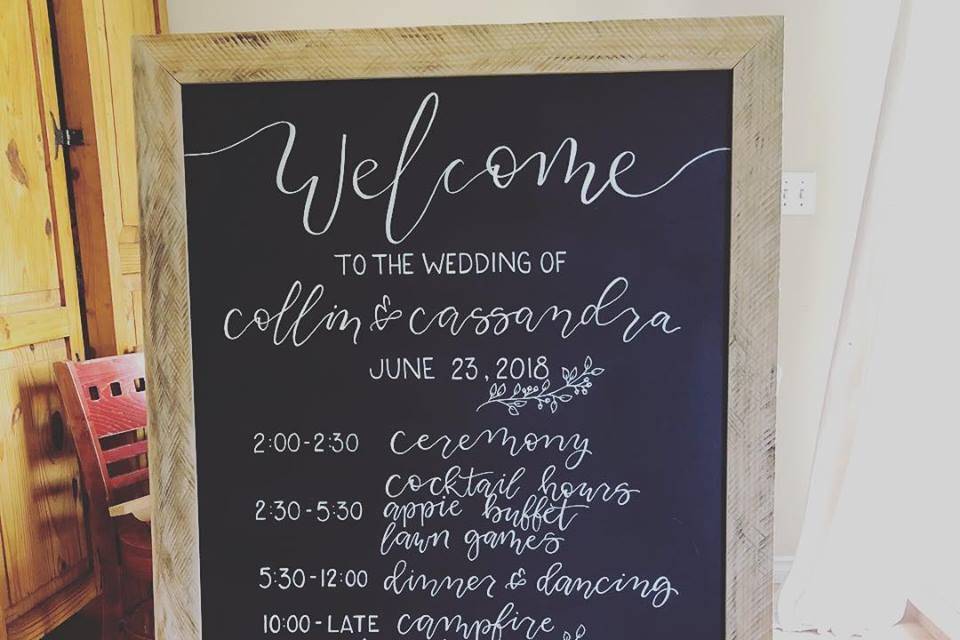 Welcome
TO THE WEDDING OF
collin & cassandra
JUNE 23, 2018
2:00-2:30 ceremony
cocktail hours
2:30-5:30 appie buffet
lawn games
5:30-12:00 dinner & dancing
10:00-LATE campfire